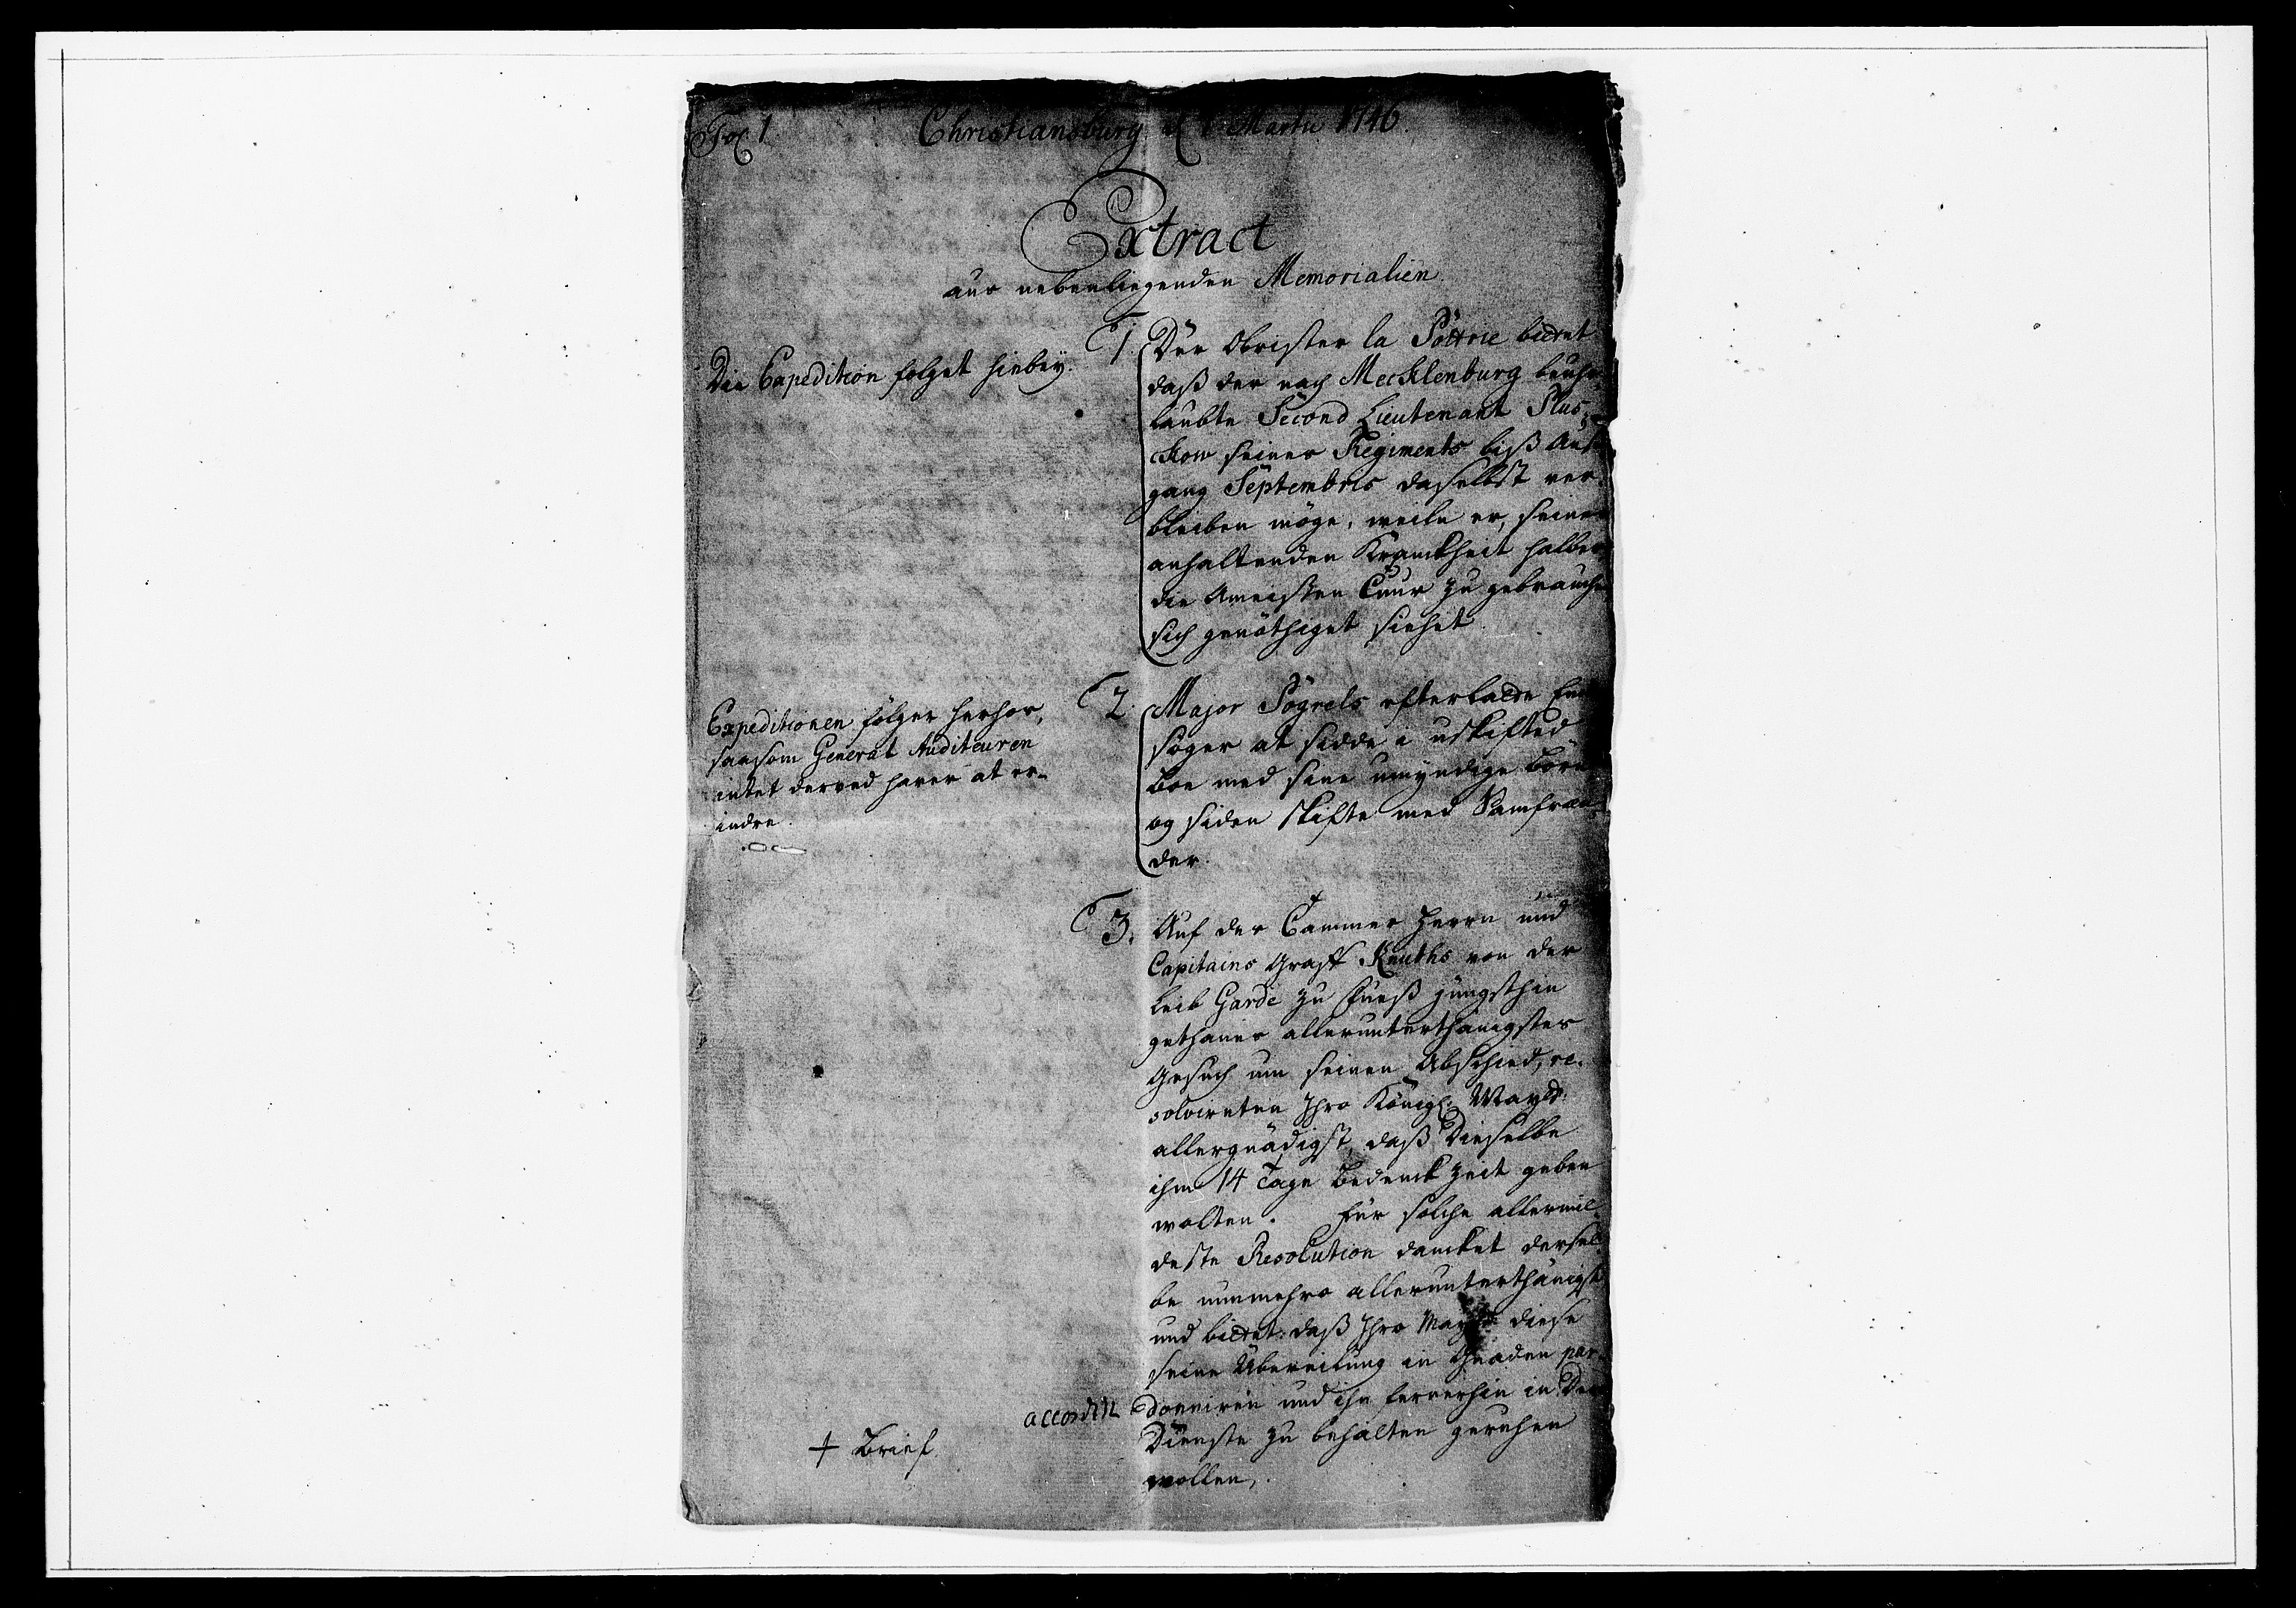 Fol. 1.
Christiansburg d 1 Martii 1746.
Extract
aus nebenliegenden Memorialien
Die Expedition folget hiebey.
1. Der Obrister la Pottrie bittet
daß der nach Mecklenburg beuhr-
laubte Second Lieutenant Plus-
ckow seines Regiments biß Auß-
gang Septembris daselbst ver-
bleiben möge, weiln er, seiner
anhaltenden Kranckheit halber
die Ameißen Cuur zu gebrauchen
sich genöthiget siehet.
Expeditionen følger herhos,
saasom General Auditeuren
intet derved haver at er-
indre.
2. Major Pogrels efterladte Enke
søger at sidde i uskifted
boe med sine umyndige børn
og siden skifte med Samfræn-
der.
3. Auf des Cammer Herrn und
Capitains Graff Knuths von der
Leib Garde zu Fueß jüngsthin
gethanes allerunterthänigstes
Gesuch um seinen Abschied, re-
solvireten Ihro Königl. Maytt.
allergnädigst, daß Dieselbe
ihm 14 Tage Bedenck Zeit geben
wolten. Für solche allermil-
deste Resolution dancket dersel-
be nunmehro allerunterthänigst
und bittet: daß Ihro Maytt. diese
seine Übereilung in Gnaden par-
donniren und ihn fernerhin in Der
Dienste zu behalten geruhen
wollen.
accordirt
+ Brief